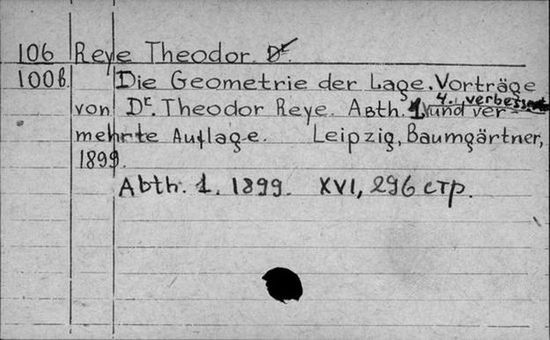 106 Reye Theodor. Dr.
100b. Die Geometrie der Lage. Vorträge
von Dr. Theodor Reye. Abth. 1. 4., verbesserte und ver-
mehrte Auflage. Leipzig, Baumgärtner,
1899.
Abth. 1. 1899. XVI, 296 стр.